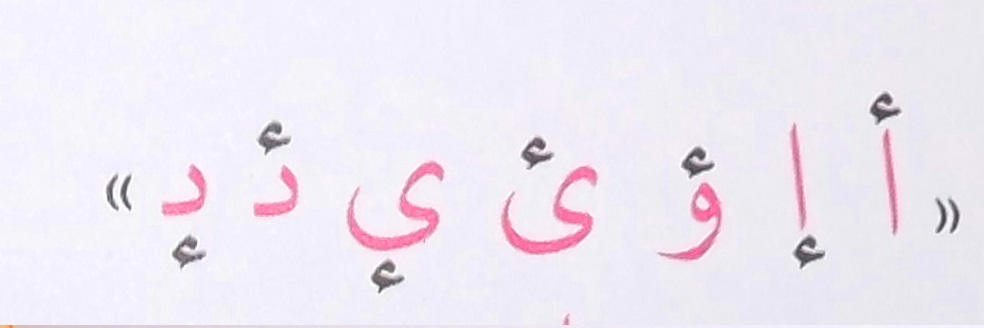 «أ إ ؤ ئ ىٕ دٔ دٕ»